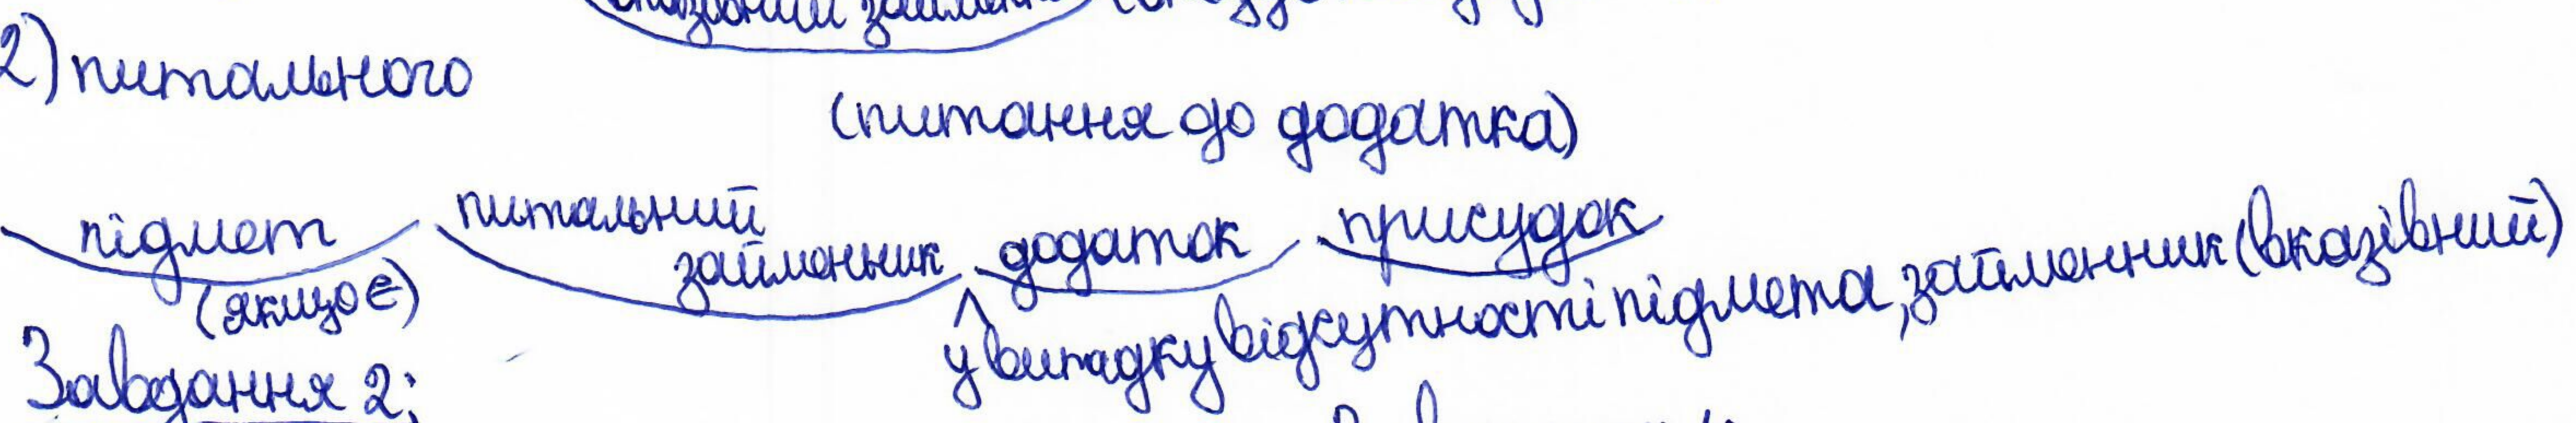 вказівний займенник
2) питального
(питання до додатка)
підмет питальний займенник додаток присудок
(якщо є) у випадку відсутності підмета, займенник (вказівний)
Завдання 2: